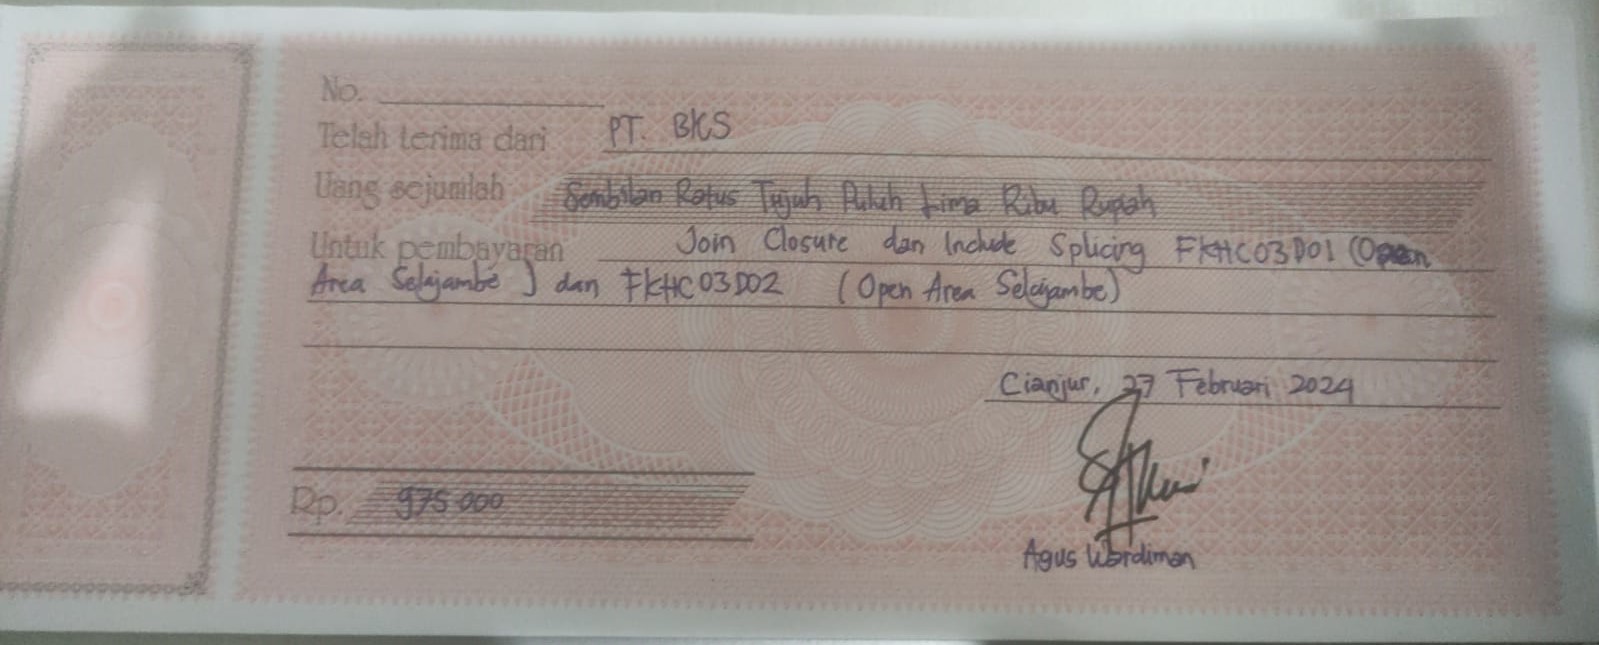 No.
Telah terima dari PT. BKS
Uang sejumlah Sembilan Ratus Tujuh Puluh Lima Ribu Rupiah
Untuk pembayaran Join Closure dan Include Splicing FKHC03D01 (Open
Area Selajambe) dan FKHC03D02 (Open Area Selajambe)
Cianjur, 27 Februari 2024
Rp. 975.000
Agus Wardiman